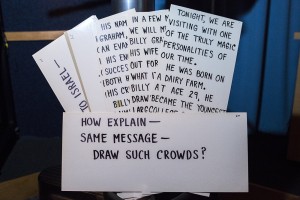 TO ISRAEL —
HIS NAM
GRAHAM,
(AN EVAN
HIS EN
SUCCES
(BOTH
(HIS CR
BILLY
IN A FEW
WE WILL M
BILLY GRA
HIS WIFE
OUT FOR
WHAT'
BILLY
DRAW
TONIGHT, WE ARE
VISITING WITH ONE
OF THE TRULY MAGIC
PERSONALITIES OF
OUR TIME.
HE WAS BORN ON
A DAIRY FARM.
AT AGE 29, HE
BECAME THE YOUNGEST
HOW EXPLAIN —
SAME MESSAGE —
DRAW SUCH CROWDS?